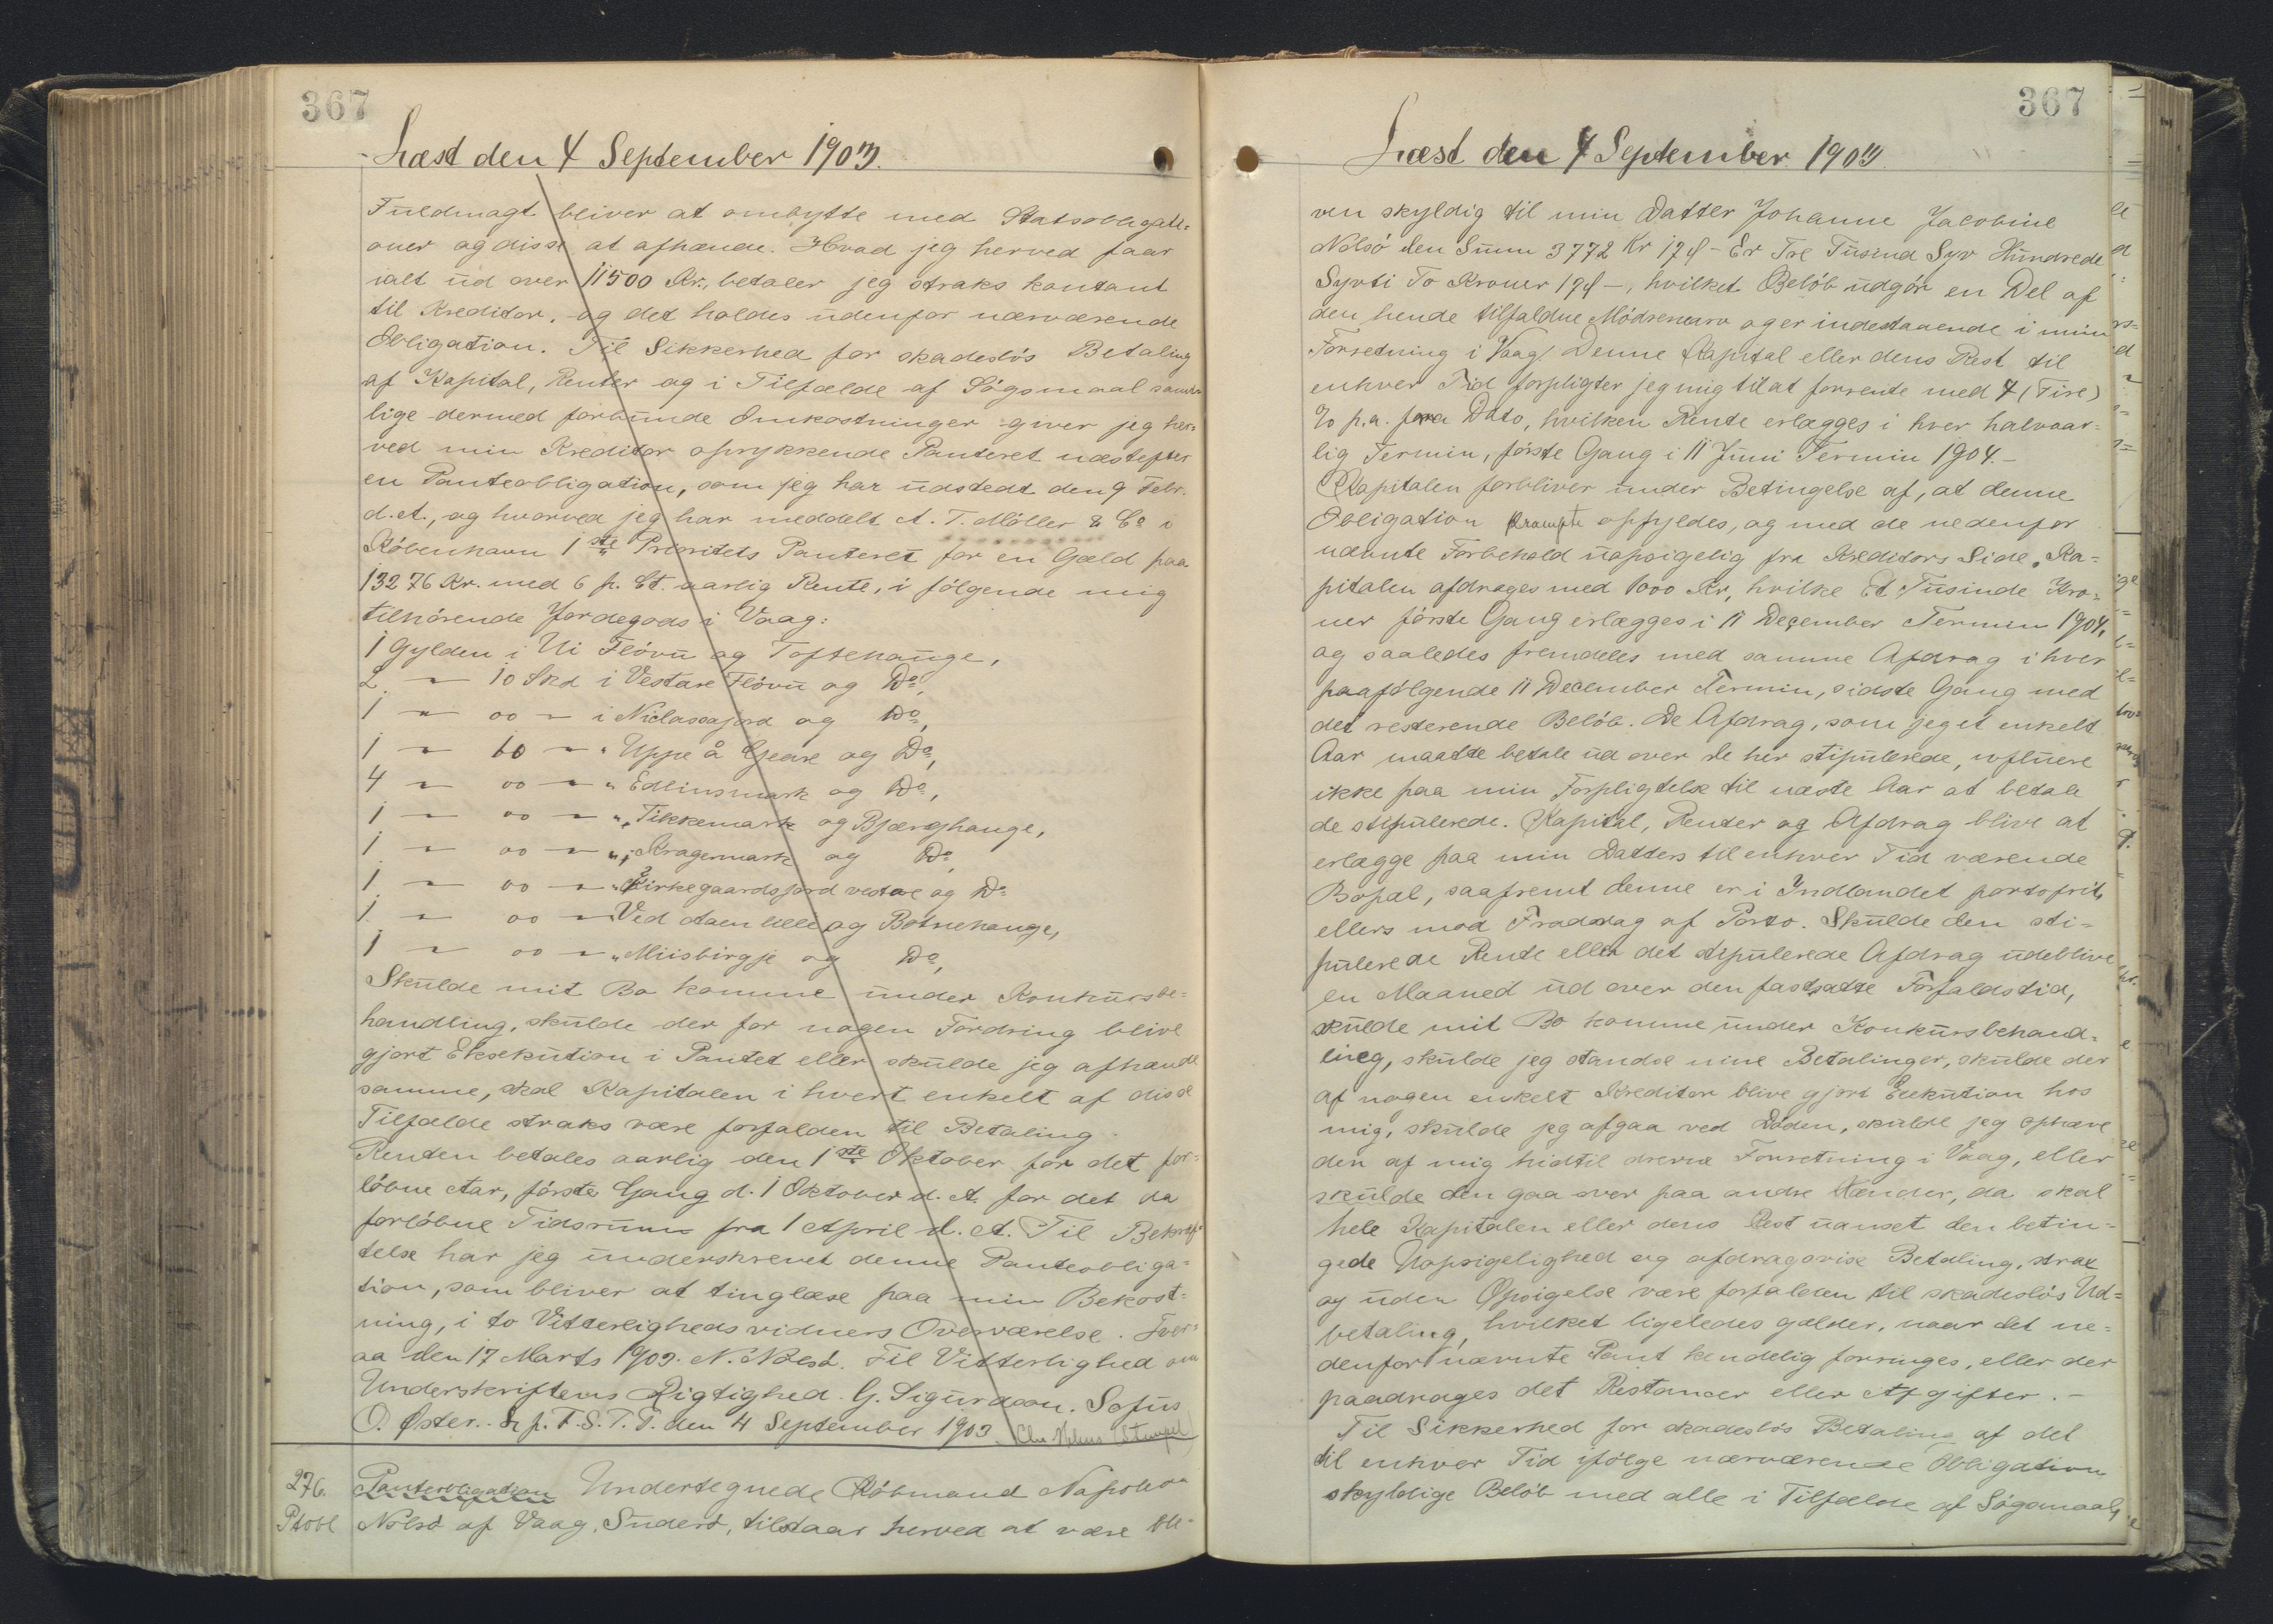 367
Læst den 4 September 1903.
Fuldmagt bliver at ombytte med Statsobligati=
oner og disse at afhænde. Hvad jeg herved faar
ialt ud over 11500 Kr., betaler jeg straks kontant
til Kreditor, og det holdes udenfor nærværende
Obligation. Til Sikkerhed for skadesløs Betaling
af Kapital, Renter og i Tilfælde af Søgsmaal samt
lige dermed forbundne Omkostninger giver jeg her=
ved min Kreditor oprykkende Panteret næstefter
en Panteobligation, som jeg har udstedt den 9 Febr.
d. A., og hvorved jeg har meddelt A. T. Möller & Co i
København 1ste Prioritets Panteret for en Gæld paa
13276 Kr. med 6 p. Ct. aarlig Rente, i følgende mig
tilhörende Jordegods i Vaag:
1 Gylden i Ui Flövu og Toftehauge,
2 — 10 Skd i Vestare Flövu og Do,
1 — 00 — i Niclassajord og Do,
1 — 10 — " Uppe å Gjeare og Do,
4 — 00 — " Edlinsmark og Do,
1 — 00 — " Tikkemark og Bjærghauge,
1 — 00 — " Kragermark og Do,
1 — 00 — " Kirkegaardsjord vestare og Do
1 — 00 — Ved Aaen lille og Botnehauge,
1 — 00 — " Miisbirgje og Do,
Skulde mit Bo komme under Konkursbe=
handling, skulde der for nogen Fordring blive
gjort Eksekution i Pantet eller skulde jeg afhænde
samme, skal Kapitalen i hvert enkelt af disse
Tilfælde straks være forfalden til Betaling.
Renten betales aarlig den 1ste Oktober for det for=
löbne Aar, første Gang d. 1 Oktober d. A. for det da
forløbne Tidsrum fra 1 April d. A. Til Bekræf=
telse har jeg underskrevet denne Panteobliga=
tion, som bliver at tinglæse paa min Bekost=
ning, i to Vitterligheds vidners Overværelse. Tver=
aa den 17 Marts 1903. N. Nolsö. Til Vitterlighed om
Underskriftens Rigtighed. G. Sigurdson. Sofus
O. Øster. Lr p. F. S. T. T. den 4 September 1903.
276. Panteobligation Undertegnede Købmand Napoleon
Ptobl Nolsö af Vaag, Suderö, tilstaar herved at være ble=
367
Læst den 4 September 1903
ven skyldig til min Datter Johanne Jacobine
Nolsö den Sum 3772 Kr 17 Ø – Er Tre Tusind Syv Hundrede
Syvti To Kroner 17 Ø –, hvilket Beløb udgør en Del af
den hende tilfaldne Mödrenearv og er indestaaende i min
Forretning i Vaag. Denne Kapital eller dens Rest til
enhver Tid forpligter jeg mig til at forrente med 4 (Fire)
% p. a. fra Dato, hvilken Rente erlægges i hver halvaar=
lig Termin, første Gang i 11 Juni Termin 1904.–
Kapitalen forbliver under Betingelse af, at denne
Obligation prompte opfyldes, og med de nedenfor
nævnte Forbehold uopsigelig fra Kreditors Side. Ka=
pitalen afdrages med 1000 Kr, hvilke Et Tusinde Kro=
ner første Gang erlægges i 11 December Termin 1904,
og saaledes fremdeles med samme Afdrag i hver
paafølgende 11 December Termin, sidste Gang med
det resterende Beløb. De Afdrag, som jeg et enkelt
Aar maatte betale ud over de her stipulerede, influere
ikke paa min Forpligtelse til næste Aar at betale
de stipulerede. Kapital, Renter og Afdrag blive at
erlægge paa min Datters til enhver Tid værende
Bopæl, saafremt denne er i Indlandet portofrit,
ellers mod Fradrag af Porto. Skulde den sti=
pulerede Rente eller det stipulerede Afdrag udeblive
en Maaned ud over den fastsatte Forfaldstid,
skulde mit Bo komme under Konkursbehand=
ling, skulde jeg standse mine Betalinger, skulde der
af nogen enkelt Kreditor blive gjort Exekution hos
mig, skulde jeg afgaa ved Döden, skulde jeg ophæve
den af mig hidtil drevne Forretning i Vaag, eller
skulde den gaa over paa andre Hænder, da skal
hele Kapitalen eller dens Rest uanset den betin=
gede Uopsigelighed og afdragsvise Betaling, strax
og uden Opsigelse være forfalden til skadesløs Ud=
betaling, hvilket ligeledes gælder, naar det ne=
denfor nævnte Pant kendelig forringes, eller der
paadrages det Restancer eller Afgifter.–
Til Sikkerhed for skadesløs Betaling af det
til enhver Tid ifølge nærværende Obligation
skyldige Beløb med alle i Tilfælde af Søgsmaal,